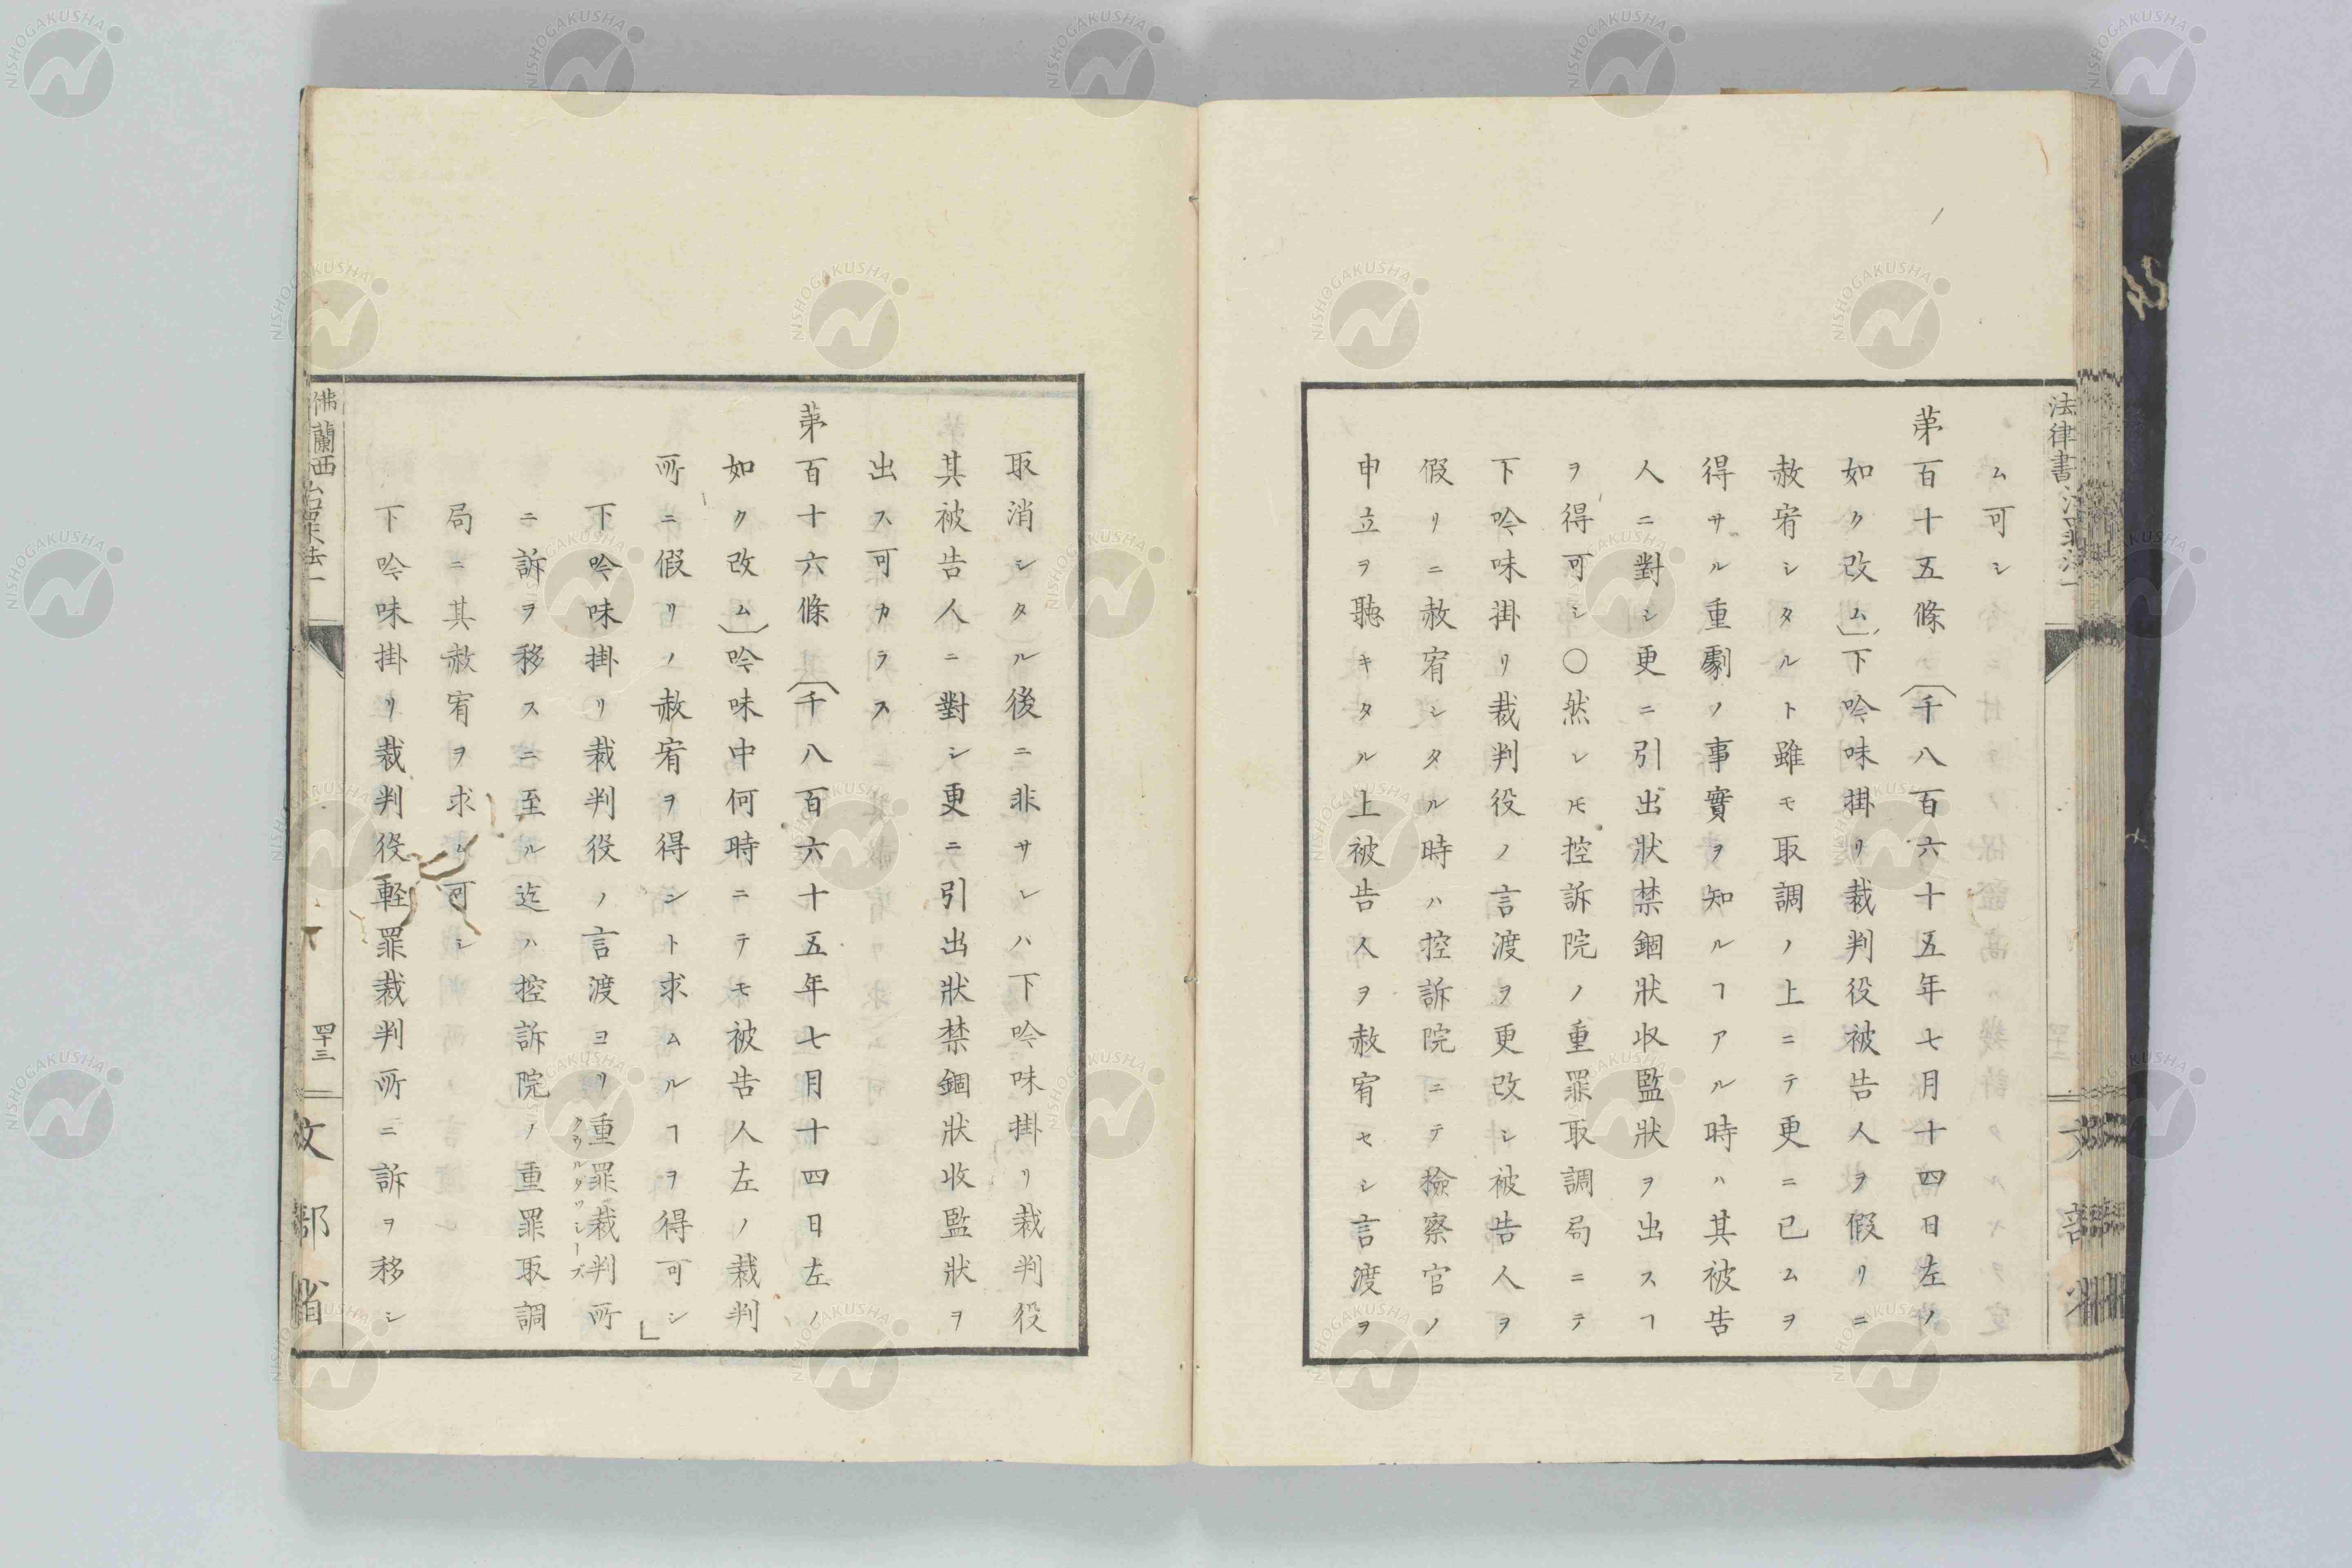 ム可シ
苐百十五條〔千八百六十五年七月十四日左ノ
如ク改ム〕下吟味掛リ裁判役被告人ヲ假リニ
赦宥シタルト雖モ取調ノ上ニテ更ニ已ムヲ
得サル重劇ノ事實ヲ知ルヿアル時ハ其被告
人ニ對シ更ニ引出狀禁錮狀収監狀ヲ出スヿ
ヲ得可シ〇然レ𪜈控訴院ノ重罪取調局ニテ
下吟味掛リ裁判役ノ言渡ヲ更改シ被告人ヲ
假リニ赦宥シタル時ハ控訴院ニテ撿察官ノ
申立ヲ聽キタル上被告人ヲ赦宥セシ言渡ヲ
取消シタル後ニ非サレハ下吟味掛リ裁判役
其被告人ニ對シ更ニ引出狀禁錮狀收監狀ヲ
出ス可カラス
苐百十六條〔千八百六十五年七月十四日左ノ
如ク改ム〕吟味中何時ニテモ被告人左ノ裁判
所ニ假リノ赦宥ヲ得ント求ムルヿヲ得可シ」
下吟味掛リ裁判役ノ言渡ヨリ重罪裁判所
クウルダワシーズ
ニ訴ヲ移スニ至ル迄ハ控訴院ノ重罪取調
局ニ其赦宥ヲ求ム可シ
下吟味掛リ裁判役輕罪裁判所ニ訴ヲ移シ
法律書
佛蘭西
四十三
文部省
NISHOGAKUSHA